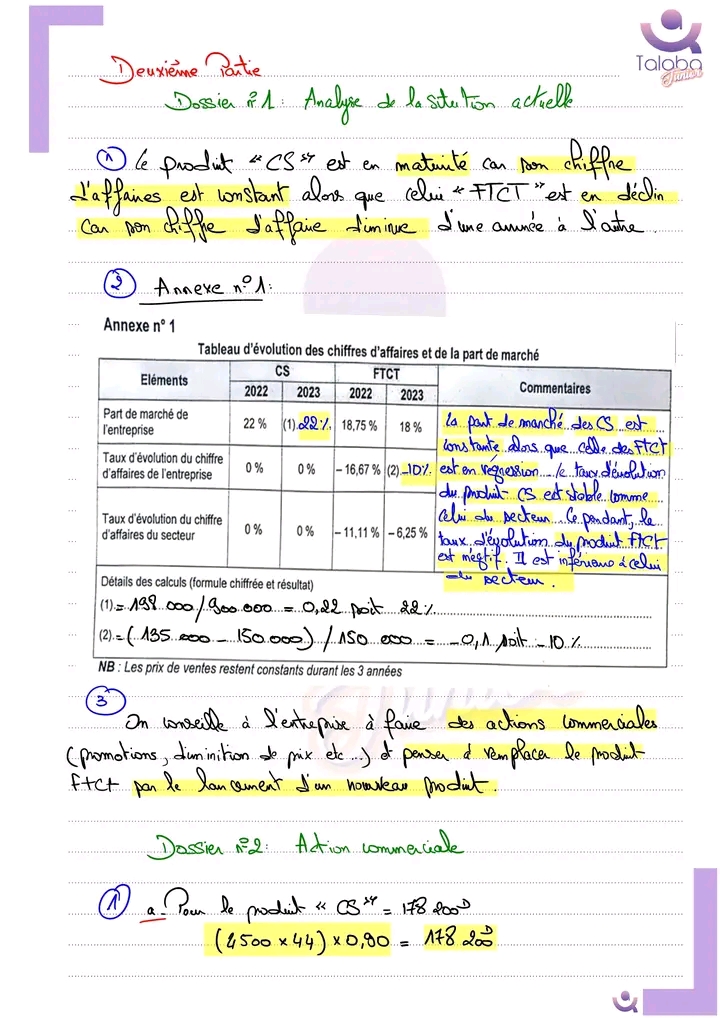 Talaba
Junior
Deuxième Partie
Dossier n°1: Analyse de la sitution actuelle
1 Le produit "CS" est en maturité car son chiffre
d'affaires est constant alors que celui "FTCT" est en déclin
car son chiffre d'affaire diminue d'une année à l'autre.
2 Annexe n°1:
Annexe n° 1
Tableau d'évolution des chiffres d'affaires et de la part de marché
Eléments CS FTCT Commentaires
2022 2023 2022 2023
Part de marché de l'entreprise 22 % (1) 22% 18,75 % 18 %
Taux d'évolution du chiffre d'affaires de l'entreprise 0 % 0 % – 16,67 % (2) -10%
Taux d'évolution du chiffre d'affaires du secteur 0 % 0 % – 11,11 % – 6,25 %
La part de marché des CS est
constante alors que celle des FTCT
est en régression. le taux d'évolution
du produit CS est stable comme
celui du secteur. Cependant, le
taux d'évolution du produit FTCT
est négtif. Il est inférieur à celui
du secteur.
Détails des calculs (formule chiffrée et résultat)
(1) = 198 000 / 900 000 = 0,22 soit 22%
(2) = (135 000 - 150 000) / 150 000 = -0,1 soit -10%
NB : Les prix de ventes restent constants durant les 3 années
3
On conseille à l'entreprise à faire des actions commerciales
(promotions, diminition de prix etc ...) et penser à remplacer le produit
FTCT par le lancement d'un nouveau produit.
Dossier n°2: Action commerciale
1 a- Pour le produit "CS" = 178 200D
(4500 x 44) x 0,90 = 178 200D